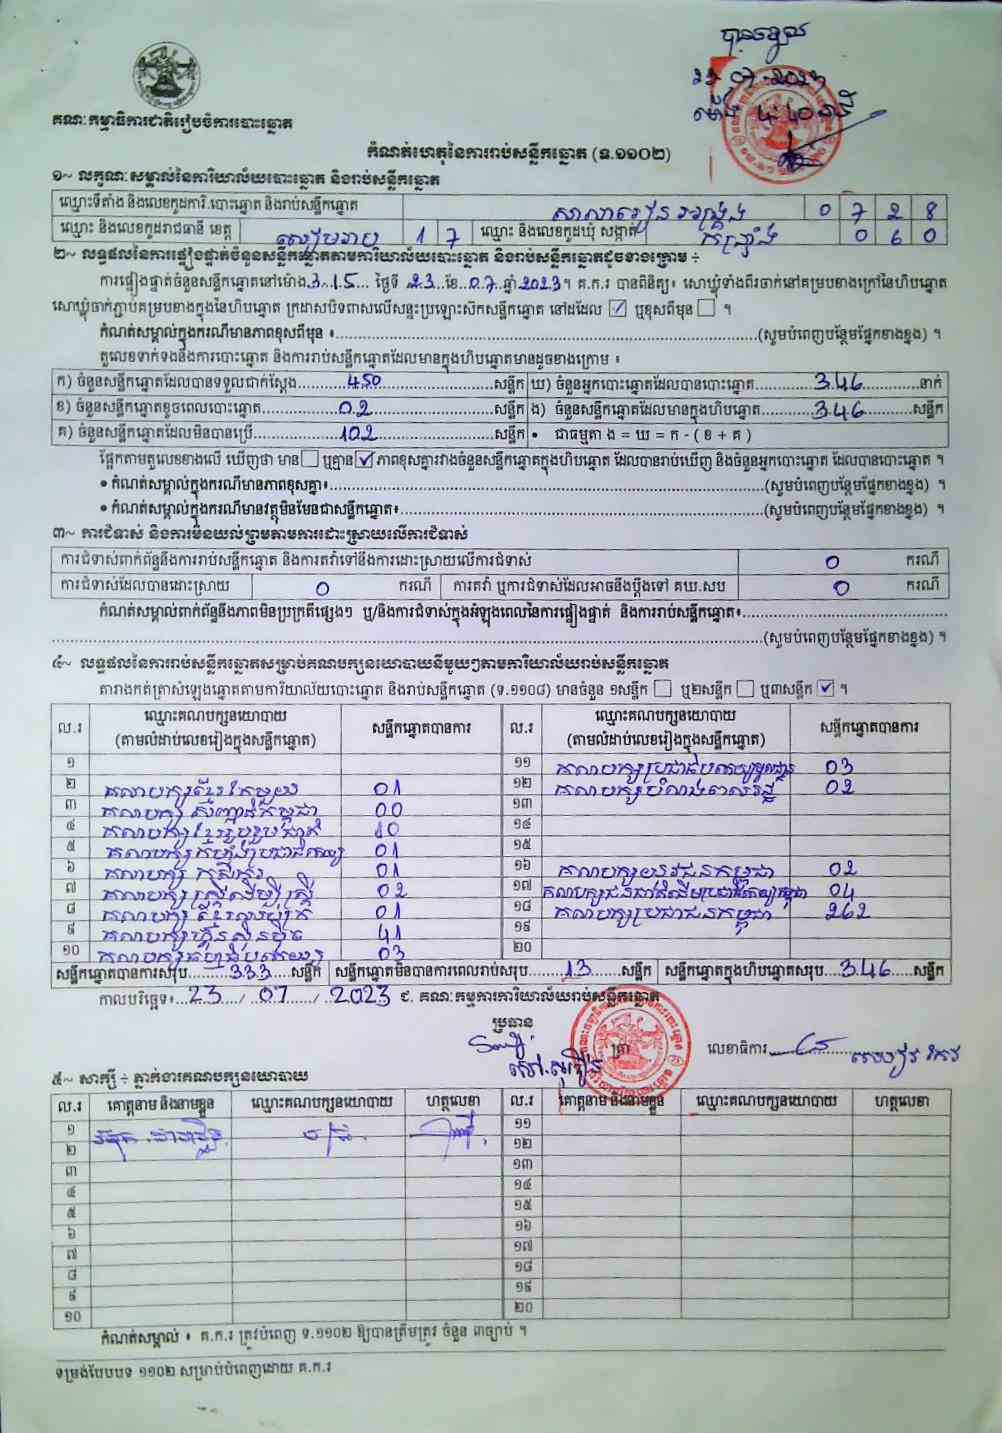 បានទទួល
23-07-2023
ម៉ោង 4:40 នាទី
គណៈកម្មាធិការជាតិរៀបចំការបោះឆ្នោត
កំណត់ហេតុនៃការរាប់សន្លឹកឆ្នោត (ទ.១១០២)
១~ លក្ខណៈសម្គាល់នៃការិយាល័យបោះឆ្នោត និងរាប់សន្លឹកឆ្នោត
ឈ្មោះទីតាំង និងលេខកូដការិ.បោះឆ្នោត និងរាប់សន្លឹកឆ្នោត សាលារៀន 0 7 2 8
ឈ្មោះ និងលេខកូដរាជធានី ខេត្ត សៀមរាប 1 7 ឈ្មោះ និងលេខកូដឃុំ សង្កាត់ 0 6 0
២~ លទ្ធផលនៃការផ្ទៀងផ្ទាត់ចំនួនសន្លឹកឆ្នោតតាមការិយាល័យបោះឆ្នោត និងរាប់សន្លឹកឆ្នោតដូចខាងក្រោម ÷
ការផ្ទៀងផ្ទាត់ចំនួនសន្លឹកឆ្នោតនៅម៉ោង 3:15 ថ្ងៃទី 23 ខែ 07 ឆ្នាំ 2023។ គ.ក.រ បានពិនិត្យ៖ សោឃ្លុំទាំងពីរចាក់នៅគម្របខាងក្រៅនៃហិបឆ្នោត
សោឃ្លុំចាក់ភ្ជាប់គម្របខាងក្នុងនៃហិបឆ្នោត ក្រដាសបិទពាសលើសន្ទះប្រឡោះស៊កសន្លឹកឆ្នោត នៅដដែល ☑ ឬខុសពីមុន ☐ ។
កំណត់សម្គាល់ក្នុងករណីមានភាពខុសពីមុន ៖ (សូមបំពេញបន្ថែមផ្នែកខាងខ្នង) ។
តួលេខទាក់ទងនឹងការបោះឆ្នោត និងការរាប់សន្លឹកឆ្នោតដែលមានក្នុងហិបឆ្នោតមានដូចខាងក្រោម ៖
ក) ចំនួនសន្លឹកឆ្នោតដែលបានទទួលជាក់ស្តែង 450 សន្លឹក ឃ) ចំនួនអ្នកបោះឆ្នោតដែលបានបោះឆ្នោត 346 នាក់
ខ) ចំនួនសន្លឹកឆ្នោតខូចពេលបោះឆ្នោត 02 សន្លឹក ង) ចំនួនសន្លឹកឆ្នោតដែលមានក្នុងហិបឆ្នោត 346 សន្លឹក
គ) ចំនួនសន្លឹកឆ្នោតដែលមិនបានប្រើ 102 សន្លឹក • ជាធម្មតា ង = ឃ = ក - ( ខ + គ )
ផ្អែកតាមតួលេខខាងលើ ឃើញថា មាន ☐ ឬគ្មាន ☑ ភាពខុសគ្នារវាងចំនួនសន្លឹកឆ្នោតក្នុងហិបឆ្នោត ដែលបានរាប់ឃើញ និងចំនួនអ្នកបោះឆ្នោត ដែលបានបោះឆ្នោត ។
• កំណត់សម្គាល់ក្នុងករណីមានភាពខុសគ្នា៖ (សូមបំពេញបន្ថែមផ្នែកខាងខ្នង) ។
• កំណត់សម្គាល់ក្នុងករណីមានវត្ថុមិនមែនជាសន្លឹកឆ្នោត៖ (សូមបំពេញបន្ថែមផ្នែកខាងខ្នង) ។
៣~ ការជំទាស់ និងការមិនយល់ព្រមតាមការដោះស្រាយលើការជំទាស់
ការជំទាស់ពាក់ព័ន្ធនឹងការរាប់សន្លឹកឆ្នោត និងការតវ៉ាទៅនឹងការដោះស្រាយលើការជំទាស់ 0 ករណី
ការជំទាស់ដែលបានដោះស្រាយ 0 ករណី ការតវ៉ា ឬការជំទាស់ដែលអាចនឹងប្តឹងទៅ គឃ.សប 0 ករណី
កំណត់សម្គាល់ពាក់ព័ន្ធនឹងភាពមិនប្រក្រតីផ្សេងៗ ឬ/និងការជំទាស់ក្នុងអំឡុងពេលនៃការផ្ទៀងផ្ទាត់ និងការរាប់សន្លឹកឆ្នោត៖
(សូមបំពេញបន្ថែមផ្នែកខាងខ្នង) ។
៤~ លទ្ធផលនៃការរាប់សន្លឹកឆ្នោតសម្រាប់គណបក្សនយោបាយនីមួយៗតាមការិយាល័យរាប់សន្លឹកឆ្នោត
តារាងកត់ត្រាសំឡេងឆ្នោតតាមការិយាល័យបោះឆ្នោត និងរាប់សន្លឹកឆ្នោត (ទ.១១០៨) មានចំនួន ១សន្លឹក ☐ ឬ២សន្លឹក ☐ ឬ៣សន្លឹក ☑ ។
ល.រ ឈ្មោះគណបក្សនយោបាយ (តាមលំដាប់លេខរៀងក្នុងសន្លឹកឆ្នោត) សន្លឹកឆ្នោតបានការ ល.រ ឈ្មោះគណបក្សនយោបាយ (តាមលំដាប់លេខរៀងក្នុងសន្លឹកឆ្នោត) សន្លឹកឆ្នោតបានការ
១ ១១ គណបក្សប្រជាធិបតេយ្យមូលដ្ឋាន 03
២ គណបក្សខ្មែរតែមួយ 01 ១២ គណបក្សបំណងពលរដ្ឋ 02
៣ គណបក្ស 00 ១៣
៤ គណបក្សខ្មែររួបរួមជាតិ 10 ១៤
៥ គណបក្សកម្លាំងប្រជាធិបតេយ្យ 01 ១៥
៦ គណបក្ស កសិករ 01 ១៦ គណបក្សយុវជនកម្ពុជា 02
៧ គណបក្ស ស្ត្រីដើម្បីស្ត្រី 02 ១៧ គណបក្សជនជាតិដើមប្រជាធិបតេយ្យកម្ពុជា 04
៨ គណបក្ស ខ្មែរឈប់ក្រ 01 ១៨ គណបក្សប្រជាជនកម្ពុជា 262
៩ គណបក្សហ៊្វុនស៊ិនប៉ិច 41 ១៩
១០ គណបក្សធម្មាធិបតេយ្យ 03 ២០
សន្លឹកឆ្នោតបានការសរុប 333 សន្លឹក សន្លឹកឆ្នោតមិនបានការពេលរាប់សរុប 13 សន្លឹក សន្លឹកឆ្នោតក្នុងហិបឆ្នោតសរុប 346 សន្លឹក
កាលបរិច្ឆេទ៖ 23 / 07 / 2023 ជ. គណៈកម្មការការិយាល័យរាប់សន្លឹកឆ្នោត
ប្រធាន
ត្រា លេខាធិការ
៥~ សាក្សី ÷ ភ្នាក់ងារគណបក្សនយោបាយ
ល.រ គោត្តនាម និងនាមខ្លួន ឈ្មោះគណបក្សនយោបាយ ហត្ថលេខា ល.រ គោត្តនាម និងនាមខ្លួន ឈ្មោះគណបក្សនយោបាយ ហត្ថលេខា
១ ១១
២ ១២
៣ ១៣
៤ ១៤
៥ ១៥
៦ ១៦
៧ ១៧
៨ ១៨
៩ ១៩
១០ ២០
កំណត់សម្គាល់ ៖ គ.ក.រ ត្រូវបំពេញ ទ.១១០២ ឱ្យបានត្រឹមត្រូវ ចំនួន ៣ច្បាប់ ។
ទម្រង់បែបបទ ១១០២ សម្រាប់បំពេញដោយ គ.ក.រ